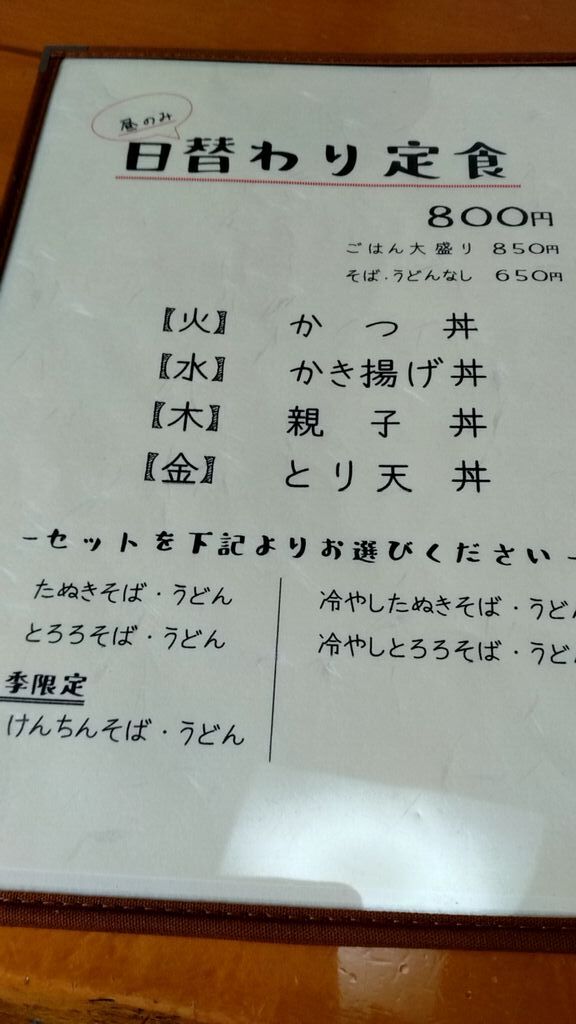 昼のみ
日替わり定食
800円
ごはん大盛り 850円
そば・うどんなし 650円
【火】 かつ丼
【水】 かき揚げ丼
【木】 親子丼
【金】 とり天丼
-セットを下記よりお選びください-
たぬきそば・うどん
とろろそば・うどん
季限定
けんちんそば・うどん
冷やしたぬきそば・うどん
冷やしとろろそば・うど